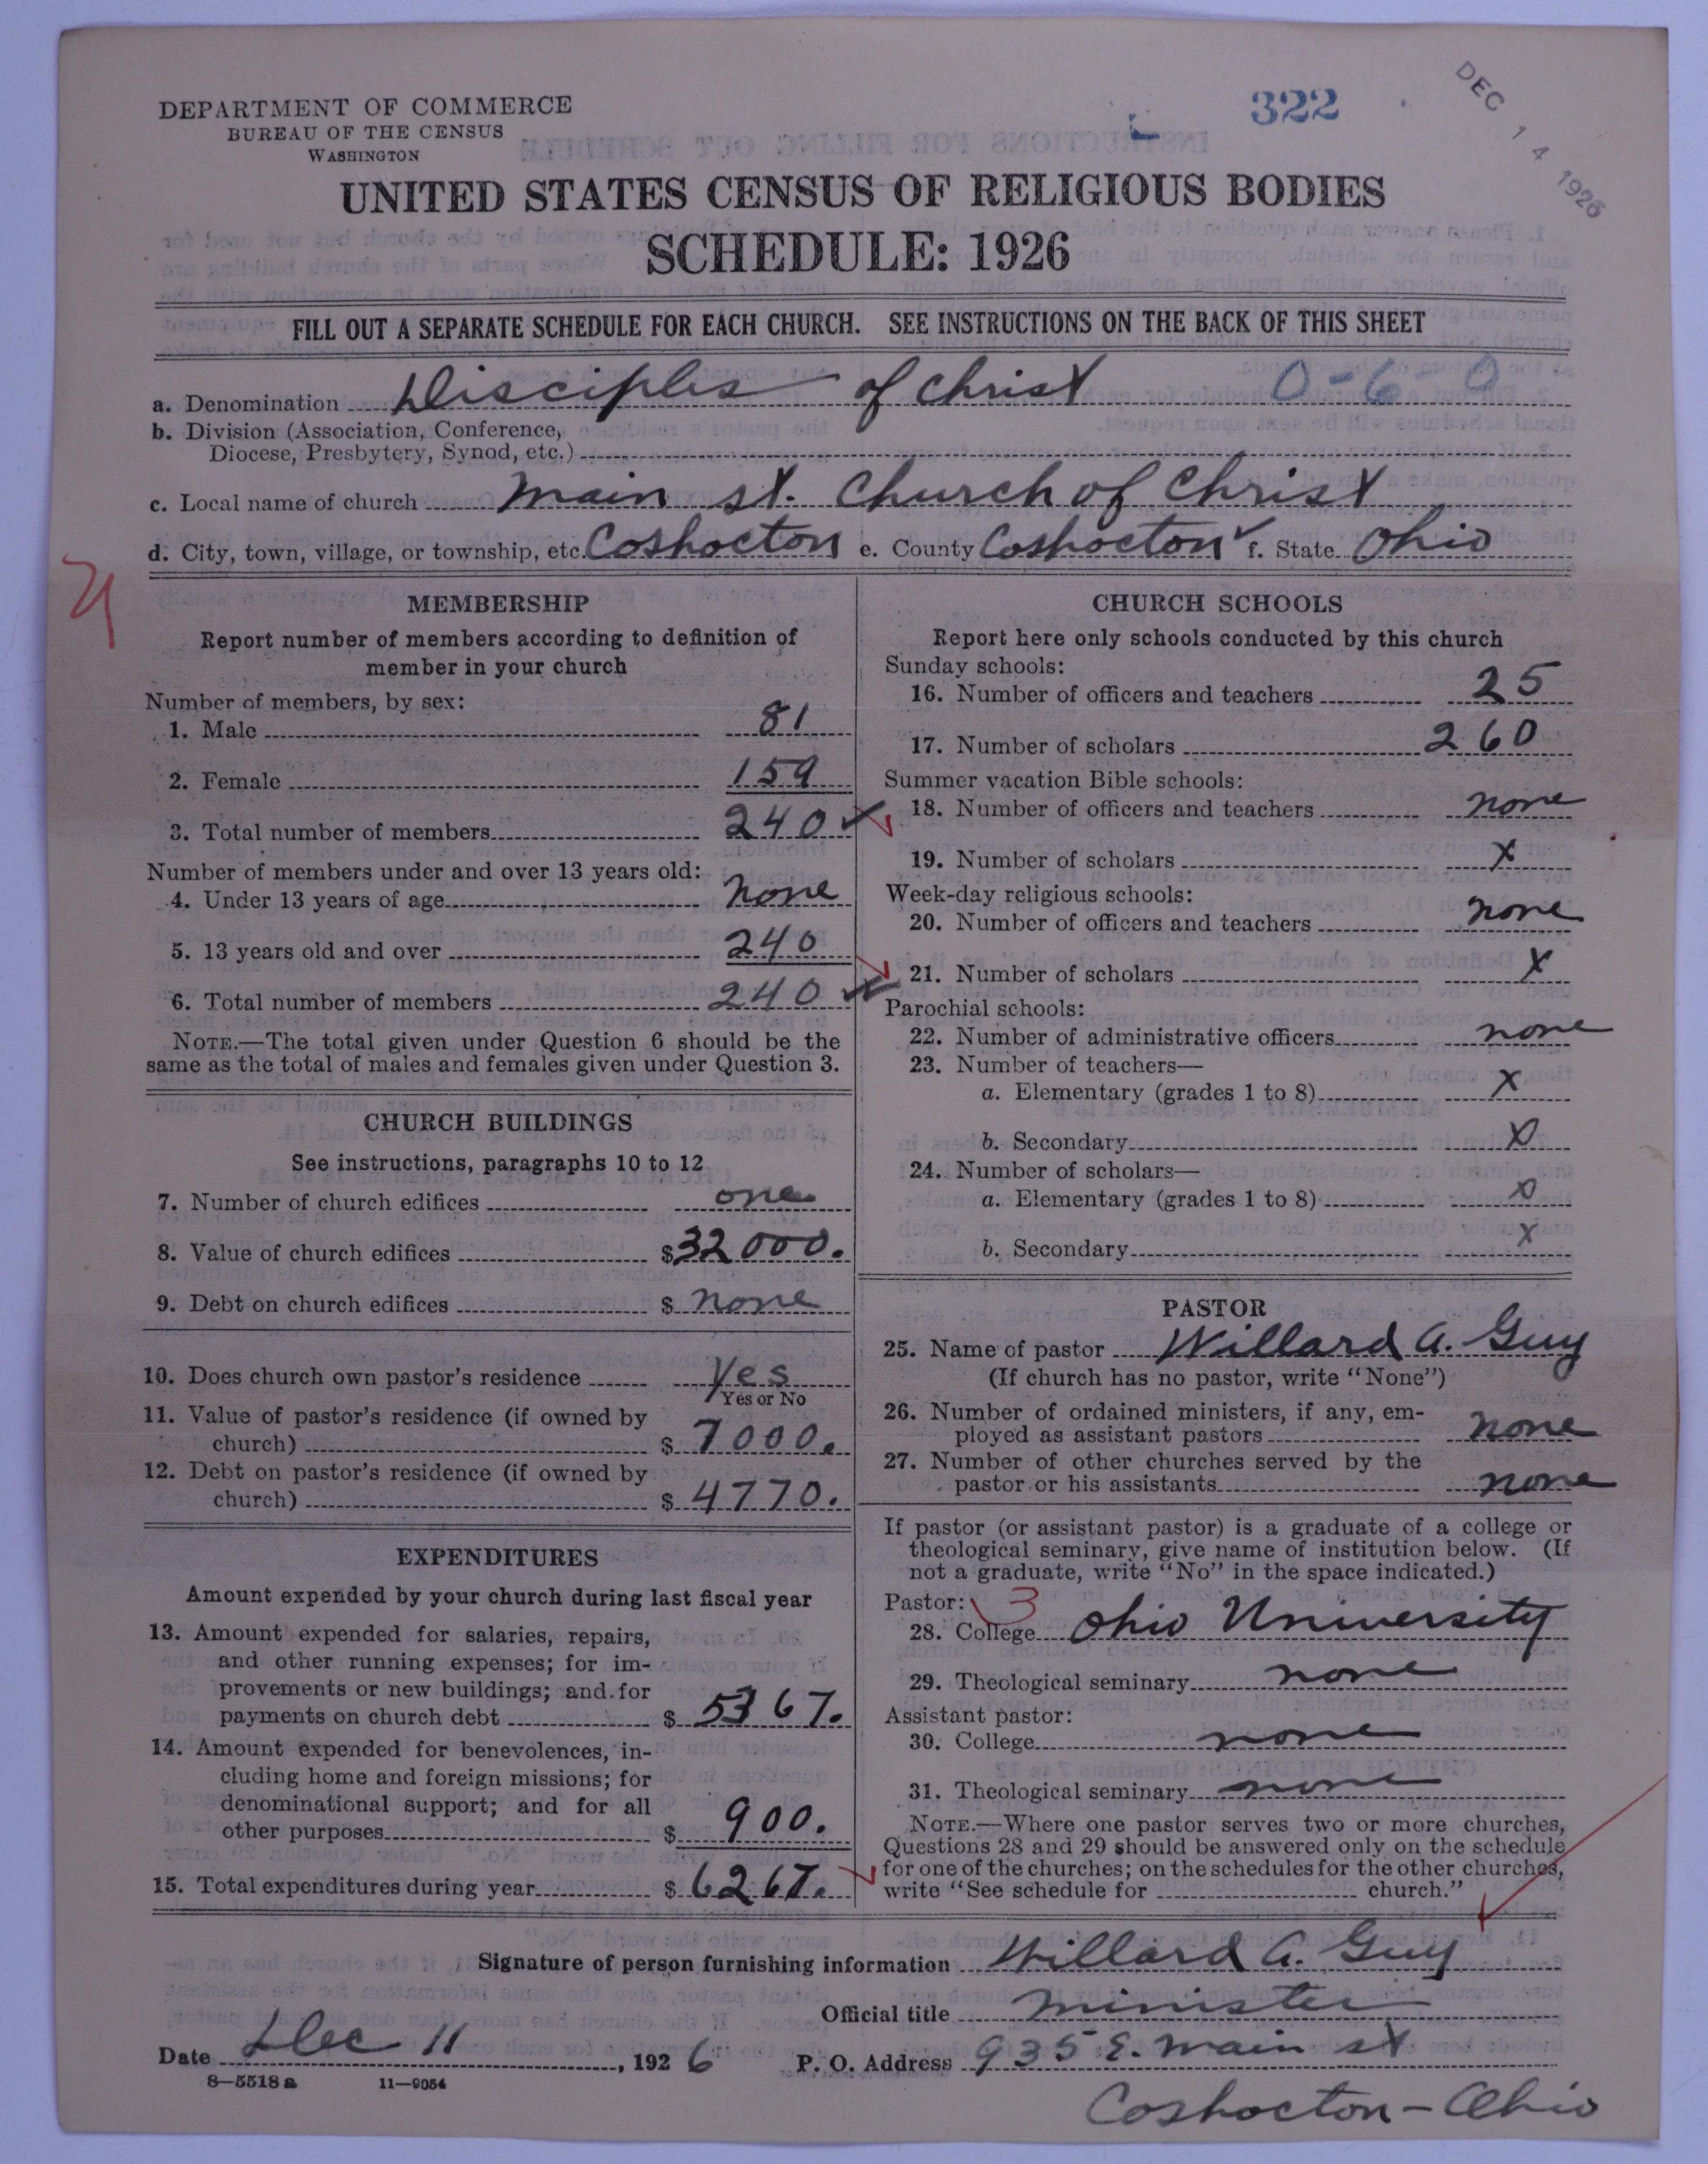 DEPARTMENT OF COMMERCE
BUREAU OF THE CENSUS
WASHINGTON
322
DEC 14 1926
UNITED STATES CENSUS OF RELIGIOUS BODIES
SCHEDULE: 1926
FILL OUT A SEPARATE SCHEDULE FOR EACH CHURCH. SEE INSTRUCTIONS ON THE BACK OF THIS SHEET
a. Denomination Disciples of Christ 0-6-0
b. Division (Association, Conference,
Diocese, Presbytery, Synod, etc.)
c. Local name of church Main st. Church of Christ
d. City, town, village, or township, etc. Coshocton e. County Coshocton f. State Ohio
MEMBERSHIP
Report number of members according to definition of
member in your church
Number of members, by sex:
1. Male 81
2. Female 159
3. Total number of members 240
Number of members under and over 13 years old:
4. Under 13 years of age none
5. 13 years old and over 240
6. Total number of members 240
NOTE.—The total given under Question 6 should be the
same as the total of males and females given under Question 3.
CHURCH BUILDINGS
See instructions, paragraphs 10 to 12
7. Number of church edifices one
8. Value of church edifices $32000.
9. Debt on church edifices $ none
10. Does church own pastor's residence Yes
Yes or No
11. Value of pastor's residence (if owned by
church) $ 7000.
12. Debt on pastor's residence (if owned by
church) $ 4770.
EXPENDITURES
Amount expended by your church during last fiscal year
13. Amount expended for salaries, repairs,
and other running expenses; for im-
provements or new buildings; and for
payments on church debt $ 5367.
14. Amount expended for benevolences, in-
cluding home and foreign missions; for
denominational support; and for all
other purposes $ 900.
15. Total expenditures during year $ 6267.
CHURCH SCHOOLS
Report here only schools conducted by this church
Sunday schools:
16. Number of officers and teachers 25
17. Number of scholars 260
Summer vacation Bible schools:
18. Number of officers and teachers none
19. Number of scholars x
Week-day religious schools:
20. Number of officers and teachers none
21. Number of scholars x
Parochial schools:
22. Number of administrative officers none
23. Number of teachers—
a. Elementary (grades 1 to 8) x
b. Secondary x
24. Number of scholars—
a. Elementary (grades 1 to 8) x
b. Secondary x
PASTOR
25. Name of pastor Willard A. Guy
(If church has no pastor, write "None")
26. Number of ordained ministers, if any, em-
ployed as assistant pastors none
27. Number of other churches served by the
pastor or his assistants none
If pastor (or assistant pastor) is a graduate of a college or
theological seminary, give name of institution below. (If
not a graduate, write "No" in the space indicated.)
Pastor: 3
28. College Ohio University
29. Theological seminary none
Assistant pastor:
30. College none
31. Theological seminary none
NOTE.—Where one pastor serves two or more churches,
Questions 28 and 29 should be answered only on the schedule
for one of the churches; on the schedules for the other churches,
write "See schedule for church."
Signature of person furnishing information Willard A. Guy
Official title Minister
Date Dec 11, 1926 P. O. Address 935 E. Main st
8—5518a 11—9054
Coshocton - Ohio